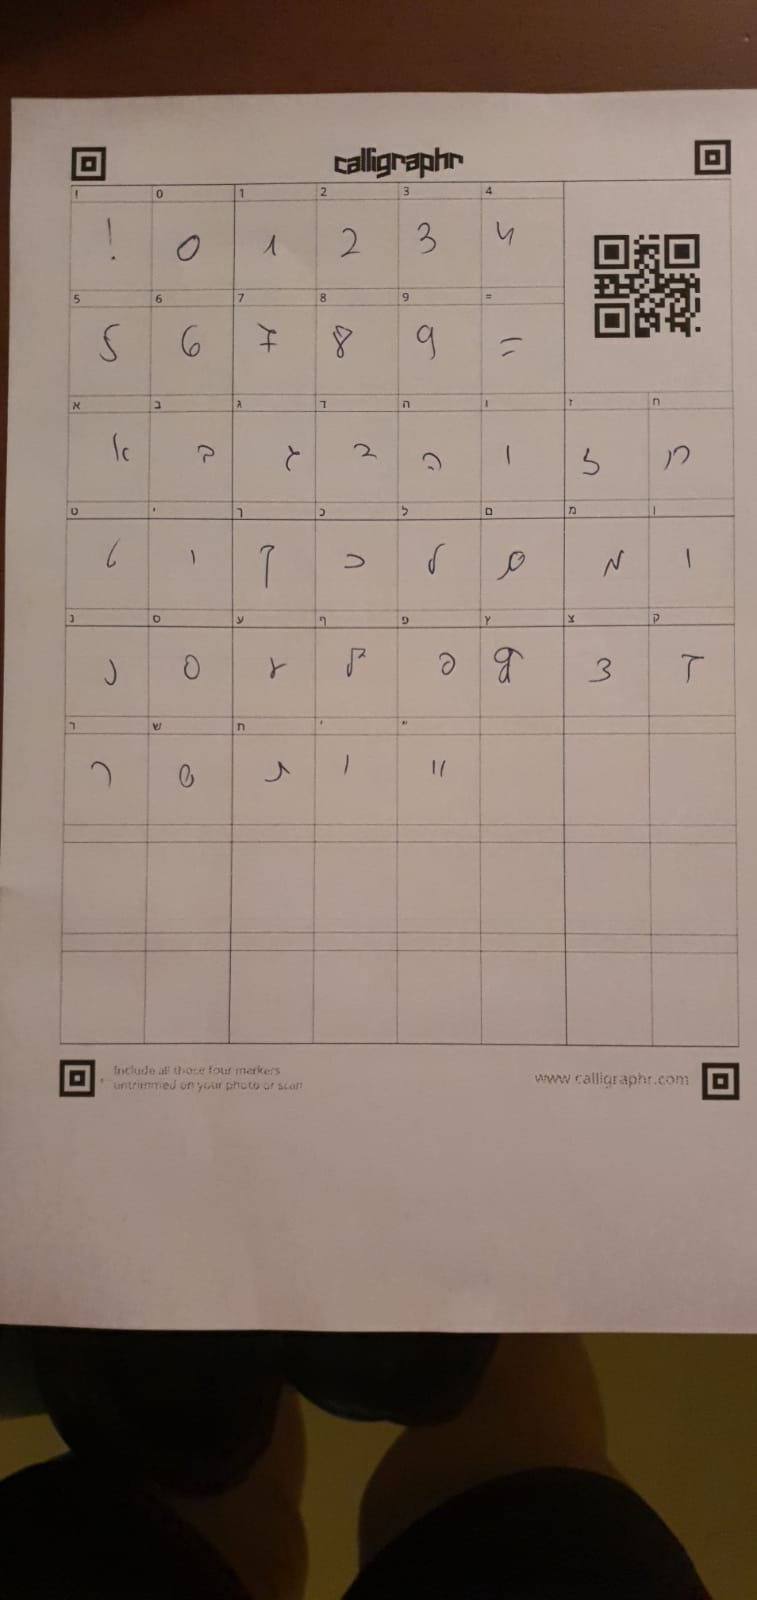 calligraphr
! 0 1 2 3 4
! 0 1 2 3 4
5 6 7 8 9 =
5 6 7 8 9 =
א ב ג ד ה ו ז ח
א ב ג ד ה ו ז ח
ט י ך כ ל ם מ ן
ט י ך כ ל ם מ ן
נ ס ע ף פ ץ צ ק
נ ס ע ף פ ץ צ ק
ר ש ת ׳ ״
ר ש ת ׳ ״
Include all those four markers
untrimmed on your photo or scan
www.calligraphr.com